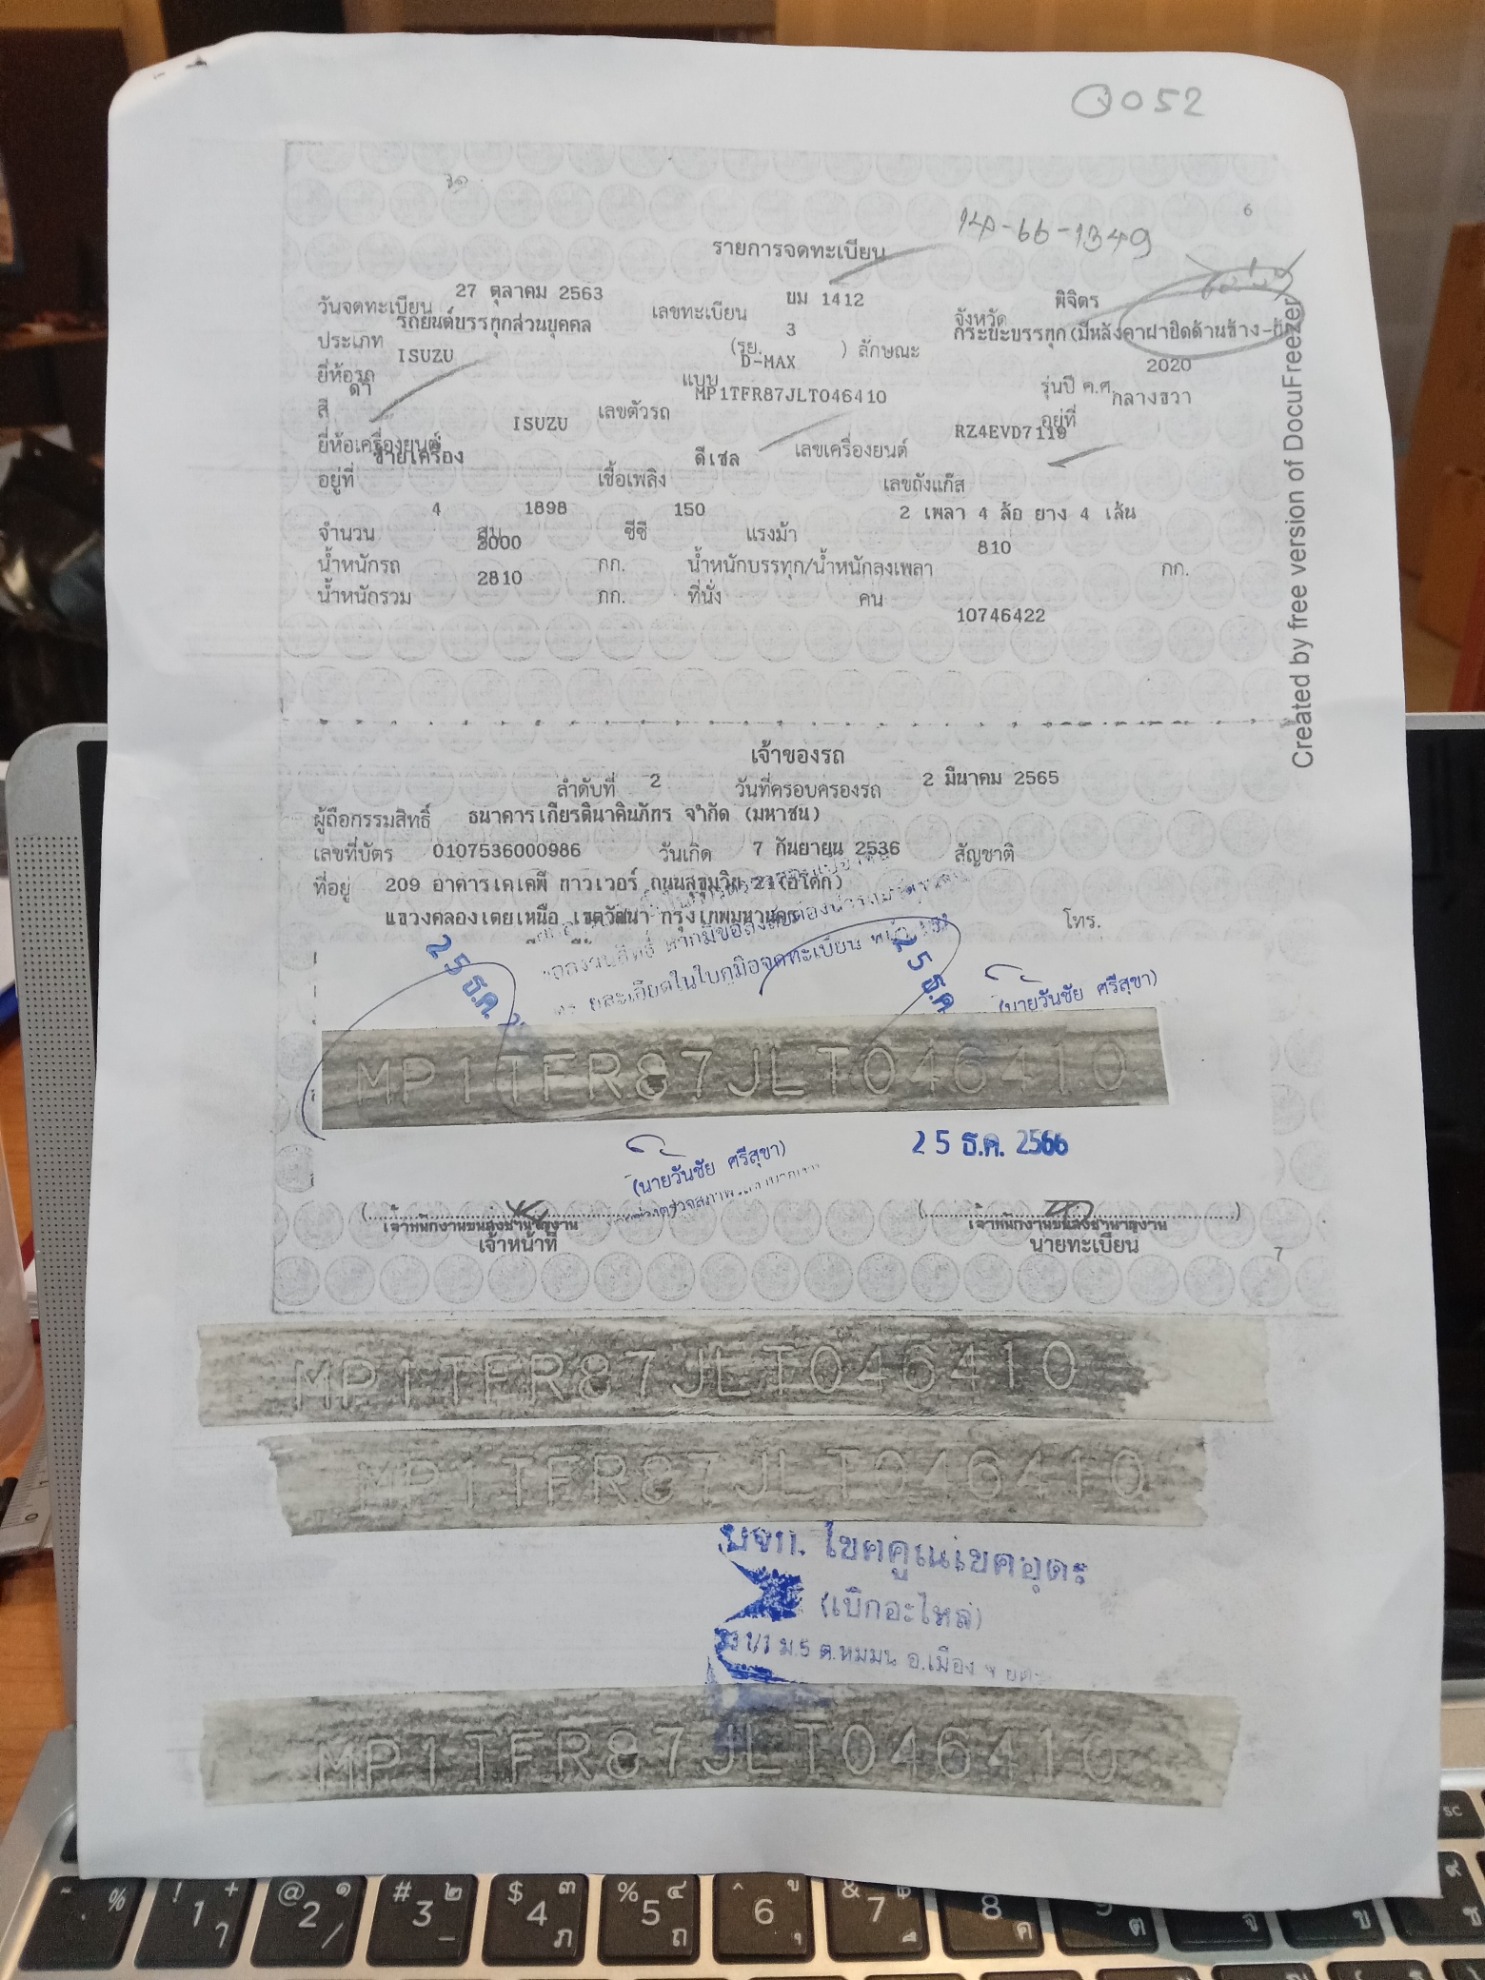 052
6
รายการจดทะเบียน
วันจดทะเบียน 27 ตุลาคม 2563 เลขทะเบียน ขม 1412 จังหวัด พิจิตร
ประเภท รถยนต์บรรทุกส่วนบุคคล (รย. 3 ) ลักษณะ กระบะบรรทุก (มีหลังคาฝาปิดด้านข้าง-
ยี่ห้อรถ ISUZU แบบ D-MAX รุ่นปี ค.ศ. 2020
สี ดำ เลขตัวรถ MP1TFR87JLT046410 อยู่ที่ กลางขวา
ยี่ห้อเครื่องยนต์ ISUZU เลขเครื่องยนต์ RZ4EVD7119
อยู่ที่ ซ้ายเครื่อง เชื้อเพลิง ดีเซล เลขถังแก๊ส
จำนวน 4 สูบ 1898 ซีซี 150 แรงม้า 2 เพลา 4 ล้อ ยาง 4 เส้น
น้ำหนักรถ 2000 กก. น้ำหนักบรรทุก/น้ำหนักลงเพลา 810 กก.
น้ำหนักรวม 2810 กก. ที่นั่ง คน
10746422
Created by free version of DocuFreezer
เจ้าของรถ
ลำดับที่ 2 วันที่ครอบครองรถ 2 มีนาคม 2565
ผู้ถือกรรมสิทธิ์ ธนาคารเกียรตินาคินภัทร จำกัด (มหาชน)
เลขที่บัตร 0107536000986 วันเกิด 7 กันยายน 2536 สัญชาติ
ที่อยู่ 209 อาคารเคเคพี ทาวเวอร์ ถนนสุขุมวิท 21(อโศก)
แขวงคลองเตยเหนือ เขตวัฒนา กรุงเทพมหานคร โทร.
25 ธ.ค.
25 ธ.ค.
(นายวันชัย ศรีสุขา)
MP1TFR87JLT046410
25 ธ.ค. 2566
(นายวันชัย ศรีสุขา)
เจ้าพนักงานขนส่งชำนาญงาน เจ้าพนักงานขนส่งชำนาญงาน
เจ้าหน้าที่ นายทะเบียน
7
MP1TFR87JLT046410
MP1TFR87JLT046410
(เบิกอะไหล่)
MP1TFR87JLT046410